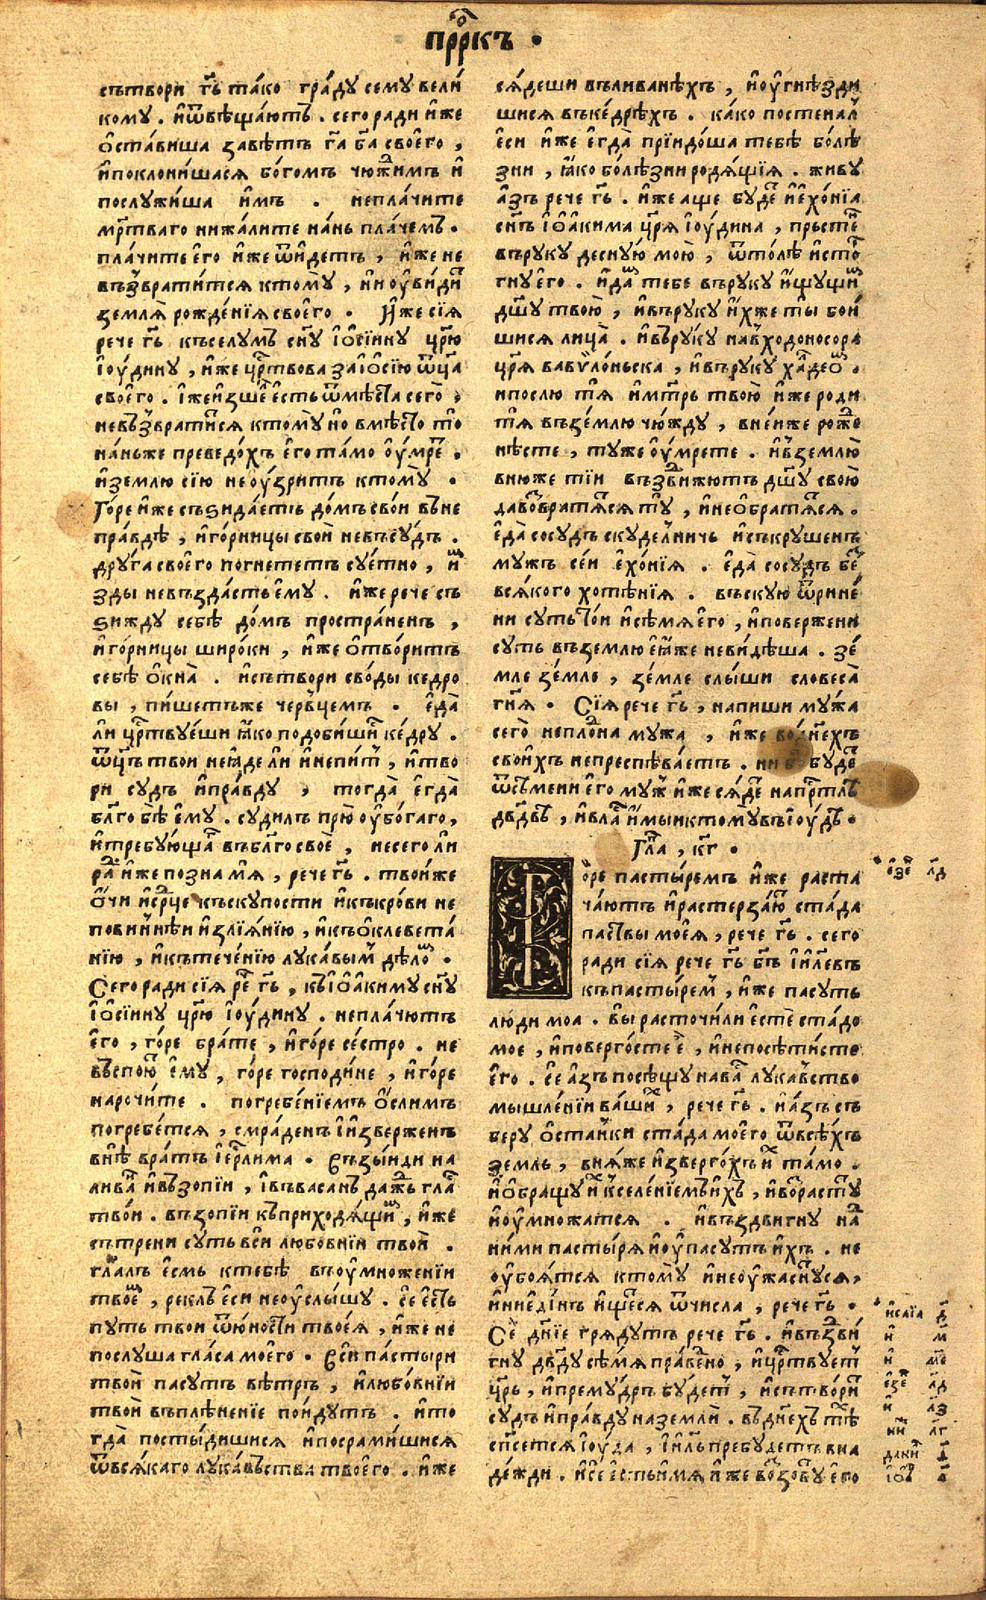 прⷪ҇ркъ ·
сътвори гь҃ та́ко гра́ду сему вели́
кому . и҆ѿвѣща́ютъ . сего ра́ди и҆́же
ѡ҆ста́виша завѣ́тъ га҃ ба҃ своего̀ ,
и҆поклони́шася бо́гомъ чюжи́мъ и҆
послужи́ша и҆́мъ . непла́чите
мр҃тваго нижали́те на́нь пла́чемъ .
пла́чите его̀ и҆́же ѿи҆́детъ , и҆́же не
възврати́тся ктомꙋ̀ , ни оу҆ви́ди
землѧ̀ рожде́нїѧ своего̀ . И҆́же сїѧ̀
рече гь҃ къселумъ сн҃у їѡ҆сі́ину цр҃ю
їоу́дину , и҆́же цр҃твова заїѡ҆сі́ю ѿц҃а
своего̀ . їжеи҆зше́ есть ѿмѣ́ста сего̀ ,
невъзврати́ся ктомꙋ̀ но вмѣ́сто то̀
на́ньже преведо́хъ его̀ та́мо оу҆́мре .
и҆землю сїю неоу́зритъ ктомꙋ̀ .
Го́ре и҆́же съзида́етъ до́мъ сво́и въне
пра́вдѣ , и҆го́рницы своѧ̀ невъсу́дъ .
дру́га своего̀ погнете́тъ су́етно , и҆м
зды невъзда́стъ ему̀ . и҆́же рече съ
зи́жду себѣ̀ до́мъ простра́ненъ ,
и҆го́рницы широ́ки , и҆́же ѿтво́ритъ
себѣ̀ ѡ҆́кна . и҆сътвори сво́ды кедро
вы , пи́шетъже че́рвцемъ . еда̀
ли цр҃твуе́ши ꙗ҆́ко подо́бишися ке́дру .
ѿц҃ъ тво́и неꙗ҆де ли и҆непи́тъ , и҆тво
ри судъ и҆пра́вду , тогда̀ егда̀
бл҃го бѣ̀ ему̀ . суди́лъ прю̀ оу҆бо́гаго ,
и҆тре́бующа въбл҃го своѐ , несего̀ ли
ра́ди и҆́же позна мѧ̀ , рече гь҃ . твои́же
ѡ҆́чи и҆ср҃це къску́пости и҆къкро́ви не
пови́ннѣи и҆злїѧ́нїю , и҆къѡ҆клевета́
нїю , и҆къте́ченїю лука́вымъ дѣло́мъ .
Сего ра́ди сїѧ̀ ре́че гь҃ , къїѡ҆а́киму сн҃у
їѡ҆сі́ину цр҃ю їоу́дину . непла́чютъ
его̀ , го́ре бра́те , и҆го́ре се́стро . не
въспою́тъ ему̀ , го́ре господи́не , и҆го́ре
нарочи́те . погребе́нїемъ ѡ҆́слимъ
погребе́тся , смра́денъ и҆и҆зве́рженъ
внѣ̀ вра́тъ їер҃лима . Възы́иди на
лива́нъ и҆възопі́и , і҆въвасанъ да́ждь гла́съ
тво́и . възопі́и къприходѧ́щимъ , и҆́же
сътре́ни суть вси любо́внїи твоѝ .
гл҃алъ е́смь ктебѣ̀ въоу҆множе́нїи
твое́мъ , реклъ еси неоу҆слы́шу . се́ есть
путь тво́и ѿю́ности твоеѧ̀ , и҆́же не
послу́ша гла́са моего̀ . Вси па́стыри
твоѝ пасу́тъ вѣ́тръ , и҆любо́внїи
твоѝ въплѣне́нїе по́идутъ . и҆то
гда̀ постыди́шися и҆посрами́шися
ѿвся́каго лука́въства твоего̀ . и҆́же
сѧ́деши въли́ванѣхъ , и҆оу҆гнѣзди́
шися въке́дрѣхъ . ка́ко постена́лъ
еси и҆́же егда̀ прїидо́ша тебѣ̀ болѣ́
зни , ꙗ҆́ко болѣ́зни родѧ́щїѧ . живу
а҆́зъ рече гь҃ . и҆́же аще бу́де і҆ехо́нїа
сн҃ъ їѡ҆а́кима цр҃ѧ їоу́дина , пръсте́нь
въруку десну́ю мою̀ , ѿто́лѣ исто́р
гну его̀ . и҆да́мъ тебе въруку и҆́щущимъ
дш҃у твою̀ , и҆въру́ку и҆́хже ты̀ бои́
шися лица̀ . и҆въру́ку навходоно́сора
цр҃ѧ вавѵло́ньска , и҆въру́ку халдеѡ́мъ .
ипослю тѧ̀ и҆мт҃рь твою̀ и҆́же роди
тѧ̀ въземлю чю́жду , вне́иже роже́но
нѣсте , туже оу҆́мрете . и҆въземлю
внюже ті́и възви́жютъ дш҃у свою̀
давъѡбратѧ́тся ту̀ , и҆неѡбратѧ́тся .
еда̀ сосу́дъ скуде́лничь и҆съкруше́нъ
му́жъ се́и ехо́нїѧ . еда̀ сосу́дъ бе́з
вся́кого хотѣ́нїѧ . въску́ю ѿрине́
ни суть то́и и҆сѣ́мѧ его̀ , и҆пове́ржени
суть въземлю еꙗ҆́же невидѣ́ша . зе́
мле зе́мле , зе́мле слы́ши словеса̀
гн҃ѧ . Сїѧ̀ рече гь҃ , напиши му́жа
сего̀ непло́дна му́жа , и҆́же водне́хъ
свои́хъ непреспѣва́етъ . ни бо̀ бу́де
ѿсѣмени его̀ му́жъ и҆́же сѧ́де напрⷭ҇тлѣ
дв҃дове , и҆вла́сть и҆́мыи ктому̀ въїоу́дѣ .
Гла , кг҃ .
Го́ре па́стыремъ и҆́же раста
ча́ютъ и҆растерза́ютъ ста́да
па́ствы моеѧ̀ , рече гь҃ . сего
ра́ди сїѧ̀ рече гь҃ бг҃ъ і҆и҃левъ
къпа́стыремъ , и҆́же пасу́ть
лю́ди моа . вы расточи́ли естѐ ста́до
мое , и҆поверго́сте ѐ , и҆непосѣти́сте
его̀ . се а҆́зъ посѣщу нава́съ лука́вство
мышле́нїи ва́шихъ , рече гь҃ . и҆а҆́зъ съ
беру ѡ҆ста́нки ста́да моего ѿвсѣ́хъ
земль , вня́же и҆зверго́хъ и҆́хъ та́мо .
и҆ѡ҆бращу и҆́хъ кселе́нїемъ и҆́хъ , и҆въ́зрасту́тъ
и҆оу҆множатся . и҆въздви́гну на́дъ
ни́ми па́стырѧ и҆оу҆пасу́тъ и҆́хъ . не
оу҆боя́тся ктому̀ и҆неоу҆жасну́тся ,
и҆ниеди́нъ и҆щеся ѿчисла , рече гь҃ .
Сѐ дн҃їе гряду́тъ рече гь҃ . и҆възви́
гну дв҃ду сѣ́мѧ пра́ведно , и҆цр҃твуетъ
цр҃ь , и҆прему́дръ бу́детъ , и҆сътво́ритъ
судъ и҆пра́вду наземлѝ . въдне́хъ тѣ́хъ
сп҃сется їоу́да , і҆и҃ль пребу́детъ вна
де́жди . и҆се́ есть и҆́мѧ и҆́же възову́тъ его
є҆зе л҃д
исаїа д҃
и҆ м҃
и҆ м҃е
є҆зе л҃д
и҆ л҃з
и҆и҆ л҃г
дани ѳ҃
їѡв а҃